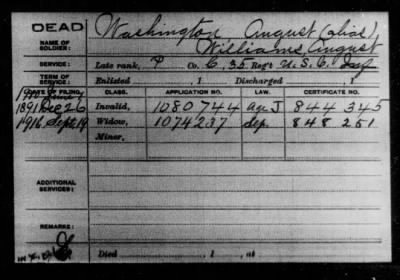 DEAD
Washington, August (alias),
NAME OF SOLDIER:
Williams, August
SERVICE:
Late rank, P Co. C, 35 Reg't U.S.C. Inf
TERM OF SERVICE:
Enlisted , 1 Discharged , 1
DATE OF FILING. CLASS. APPLICATION NO. LAW. CERTIFICATE NO.
1891 Dec 26 Invalid, 1080744 J 844345
1916 Sept 19 Widow, 1074237 848251
Minor,
ADDITIONAL SERVICES:
REMARKS:
Died , 1 , at